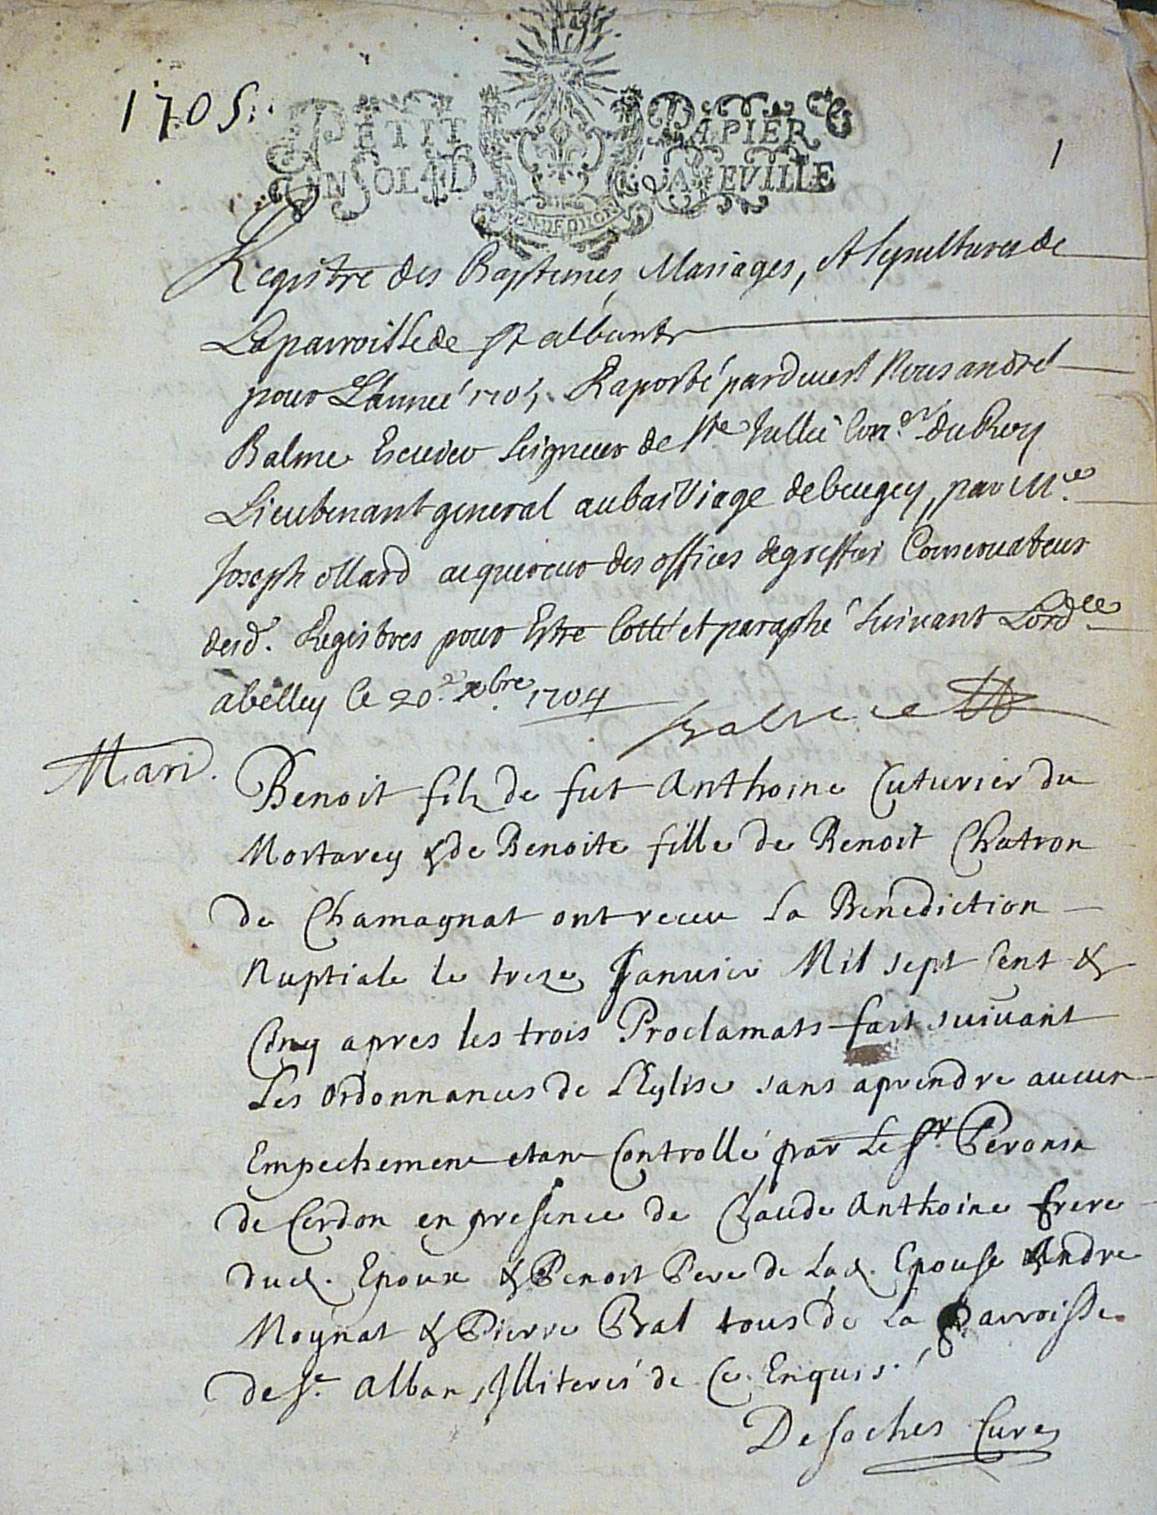 1705.
PETIT PAPIER
UN SOL 4 D LA FEVILLE
GEN DE DIION
1
Registre des Baptemes, Mariages, et Sepultures de
La parroisse de st alban
pour L'année 1705. Raporté pardevent Nous andré
Balme Escuier Seigneur de Ste Jullie Con.er du Roy
Lieutenant general au bailliage de beugey, par Me
Joseph ollard acquereur des offices de greffier Conservateur
desd. Registres pour Estre Cotté et paraphé Suivant Lord.ce
a belley le 20.e xbre 1704
Balme
Mari.
Benoit filz de fut Anthoine Cuturier du
Mortarey & de Benoite fille de Benoit Chatron
de Chamagnat ont receu la Benediction
Nuptiale le treze Janvier Mil sept Cent &
Cinq apres les trois Proclamats fait suivant
Les Ordonnances de L'Eglise sans aprendre aucun
Empechement etan Controllé par Le Sr. Peronin
de Cerdon en presence de Claude Anthoine frere
dud. Epoux & Benoit Pere de Lad. Epouse & Andre
Moynat & Pierre Bral tous de La Parroisse
de St. Alban, Illiterés de Ce Enquis.
Desoches Cure